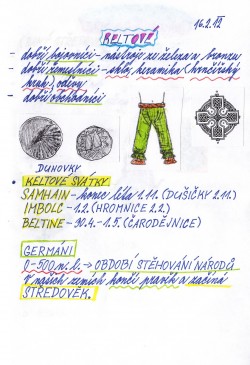 16.2.12
KELTOVÉ
- dobří bojovníci - nástroje ze železa a bronzu
- dobří zemědělci - pole, keramika (hrnčířský
kruh), oděvy
- dobří obchodníci
DUHOVKY
• KELTOVÉ SVÁTKY
SAMHAIN - konec léta 1.11. (DUŠIČKY 2.11.)
IMBOLC - 1.2. (HROMNICE 2.2.)
BELTINE - 30.4. - 1.5. (ČARODĚJNICE)
GERMÁNI
0-500 n. l. → OBDOBÍ STĚHOVÁNÍ NÁRODŮ
V našich zemích končí pravěk a začíná
STŘEDOVĚK.